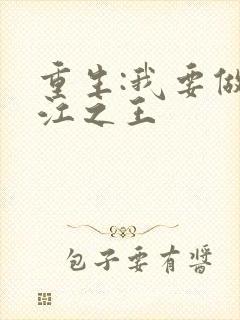 重生:我要做
江之王
包子要有醬